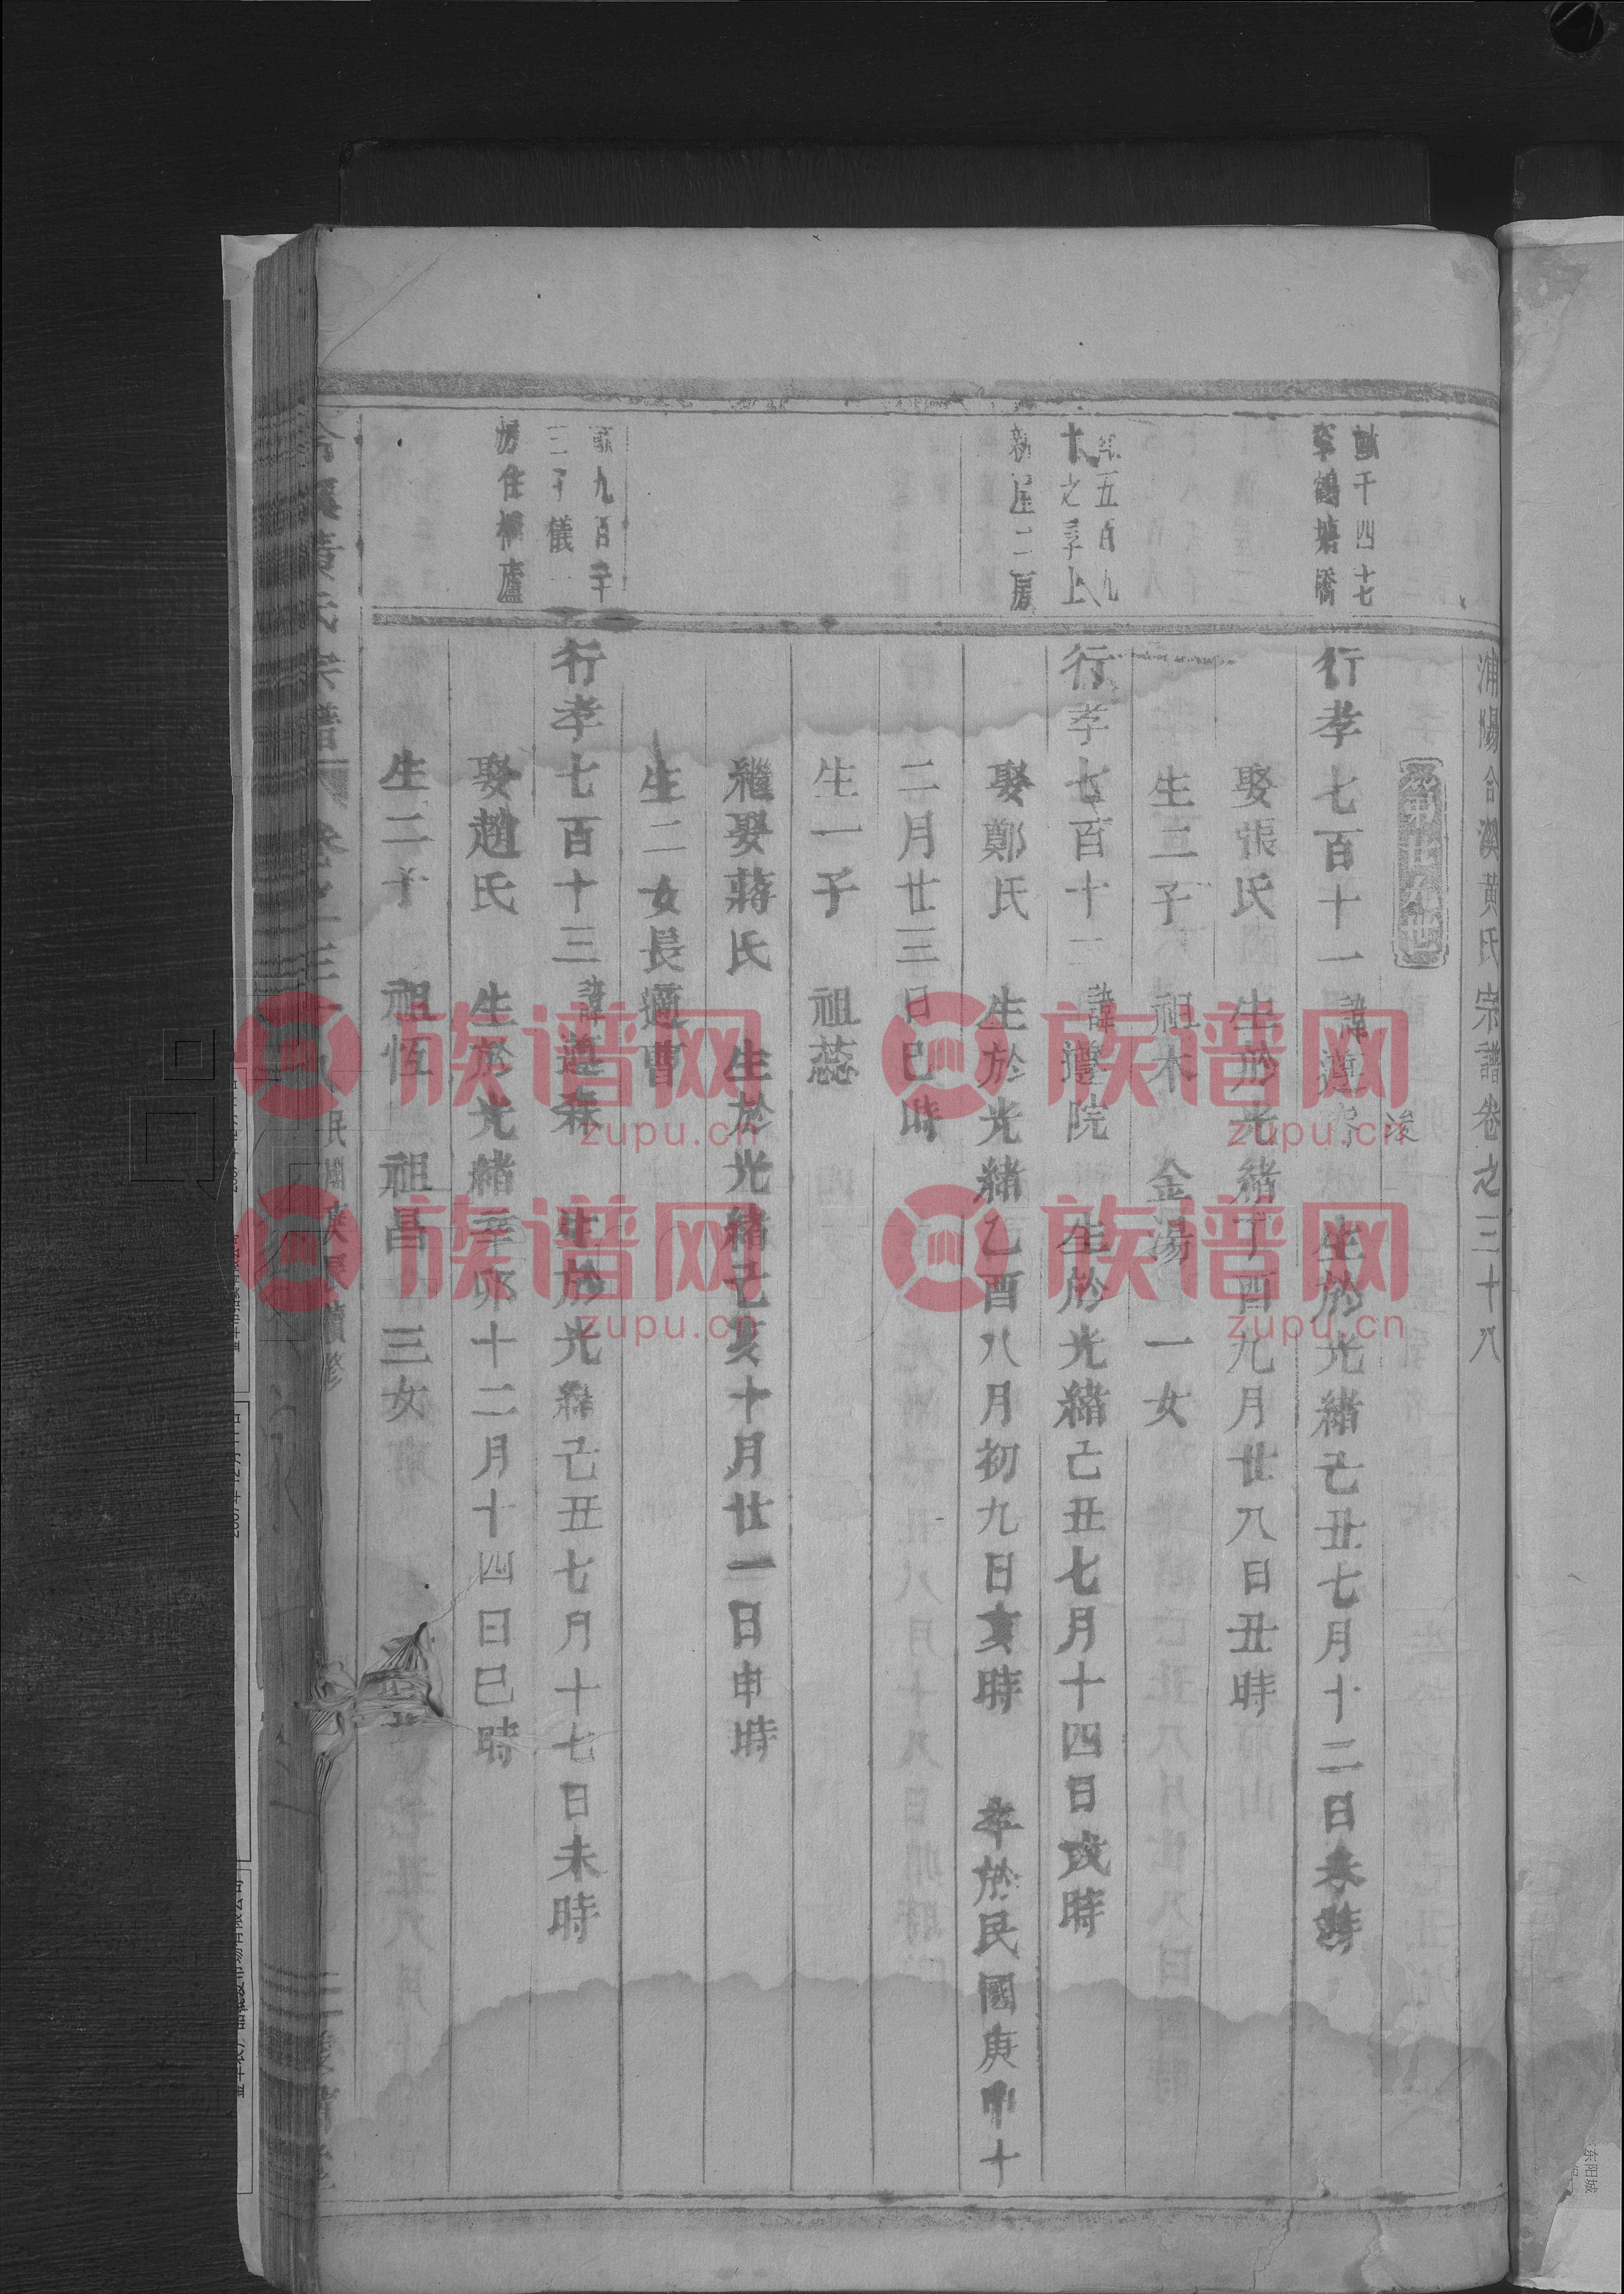 浦陽合溪黃氏宗譜卷之三十八
千四七
鶴塘橋
行孝七百十一 諱遵 浚 生於光緒己丑七月十二日 時
娶張氏 生於光緒丁酉九月廿八日丑時
生二子 祖木 金湯 一女
五百九
十之孚上
新屋二房
行孝七百十二 諱遵院 生於光緒己丑七月十四日戌時
娶鄭氏 生於光緒乙酉八月初九日亥時 卒於民國庚申十
二月廿三日巳時
生一子 祖蕊
繼娶蔣氏 生於光緒己亥十月廿一日申時
生二女長適曹
九百
三子儀一
房住樟廬
行孝七百十三 諱遵森 生於光緒己丑七月十七日未時
娶趙氏 生於光緒辛卯十二月十四日巳時
生二子 祖恆 祖昌 三女
合溪黃氏宗譜 卷之三十八 民國庚辰續修
族谱网
zupu.cn
族谱网
zupu.cn
族谱网
zupu.cn
族谱网
zupu.cn
东阳城